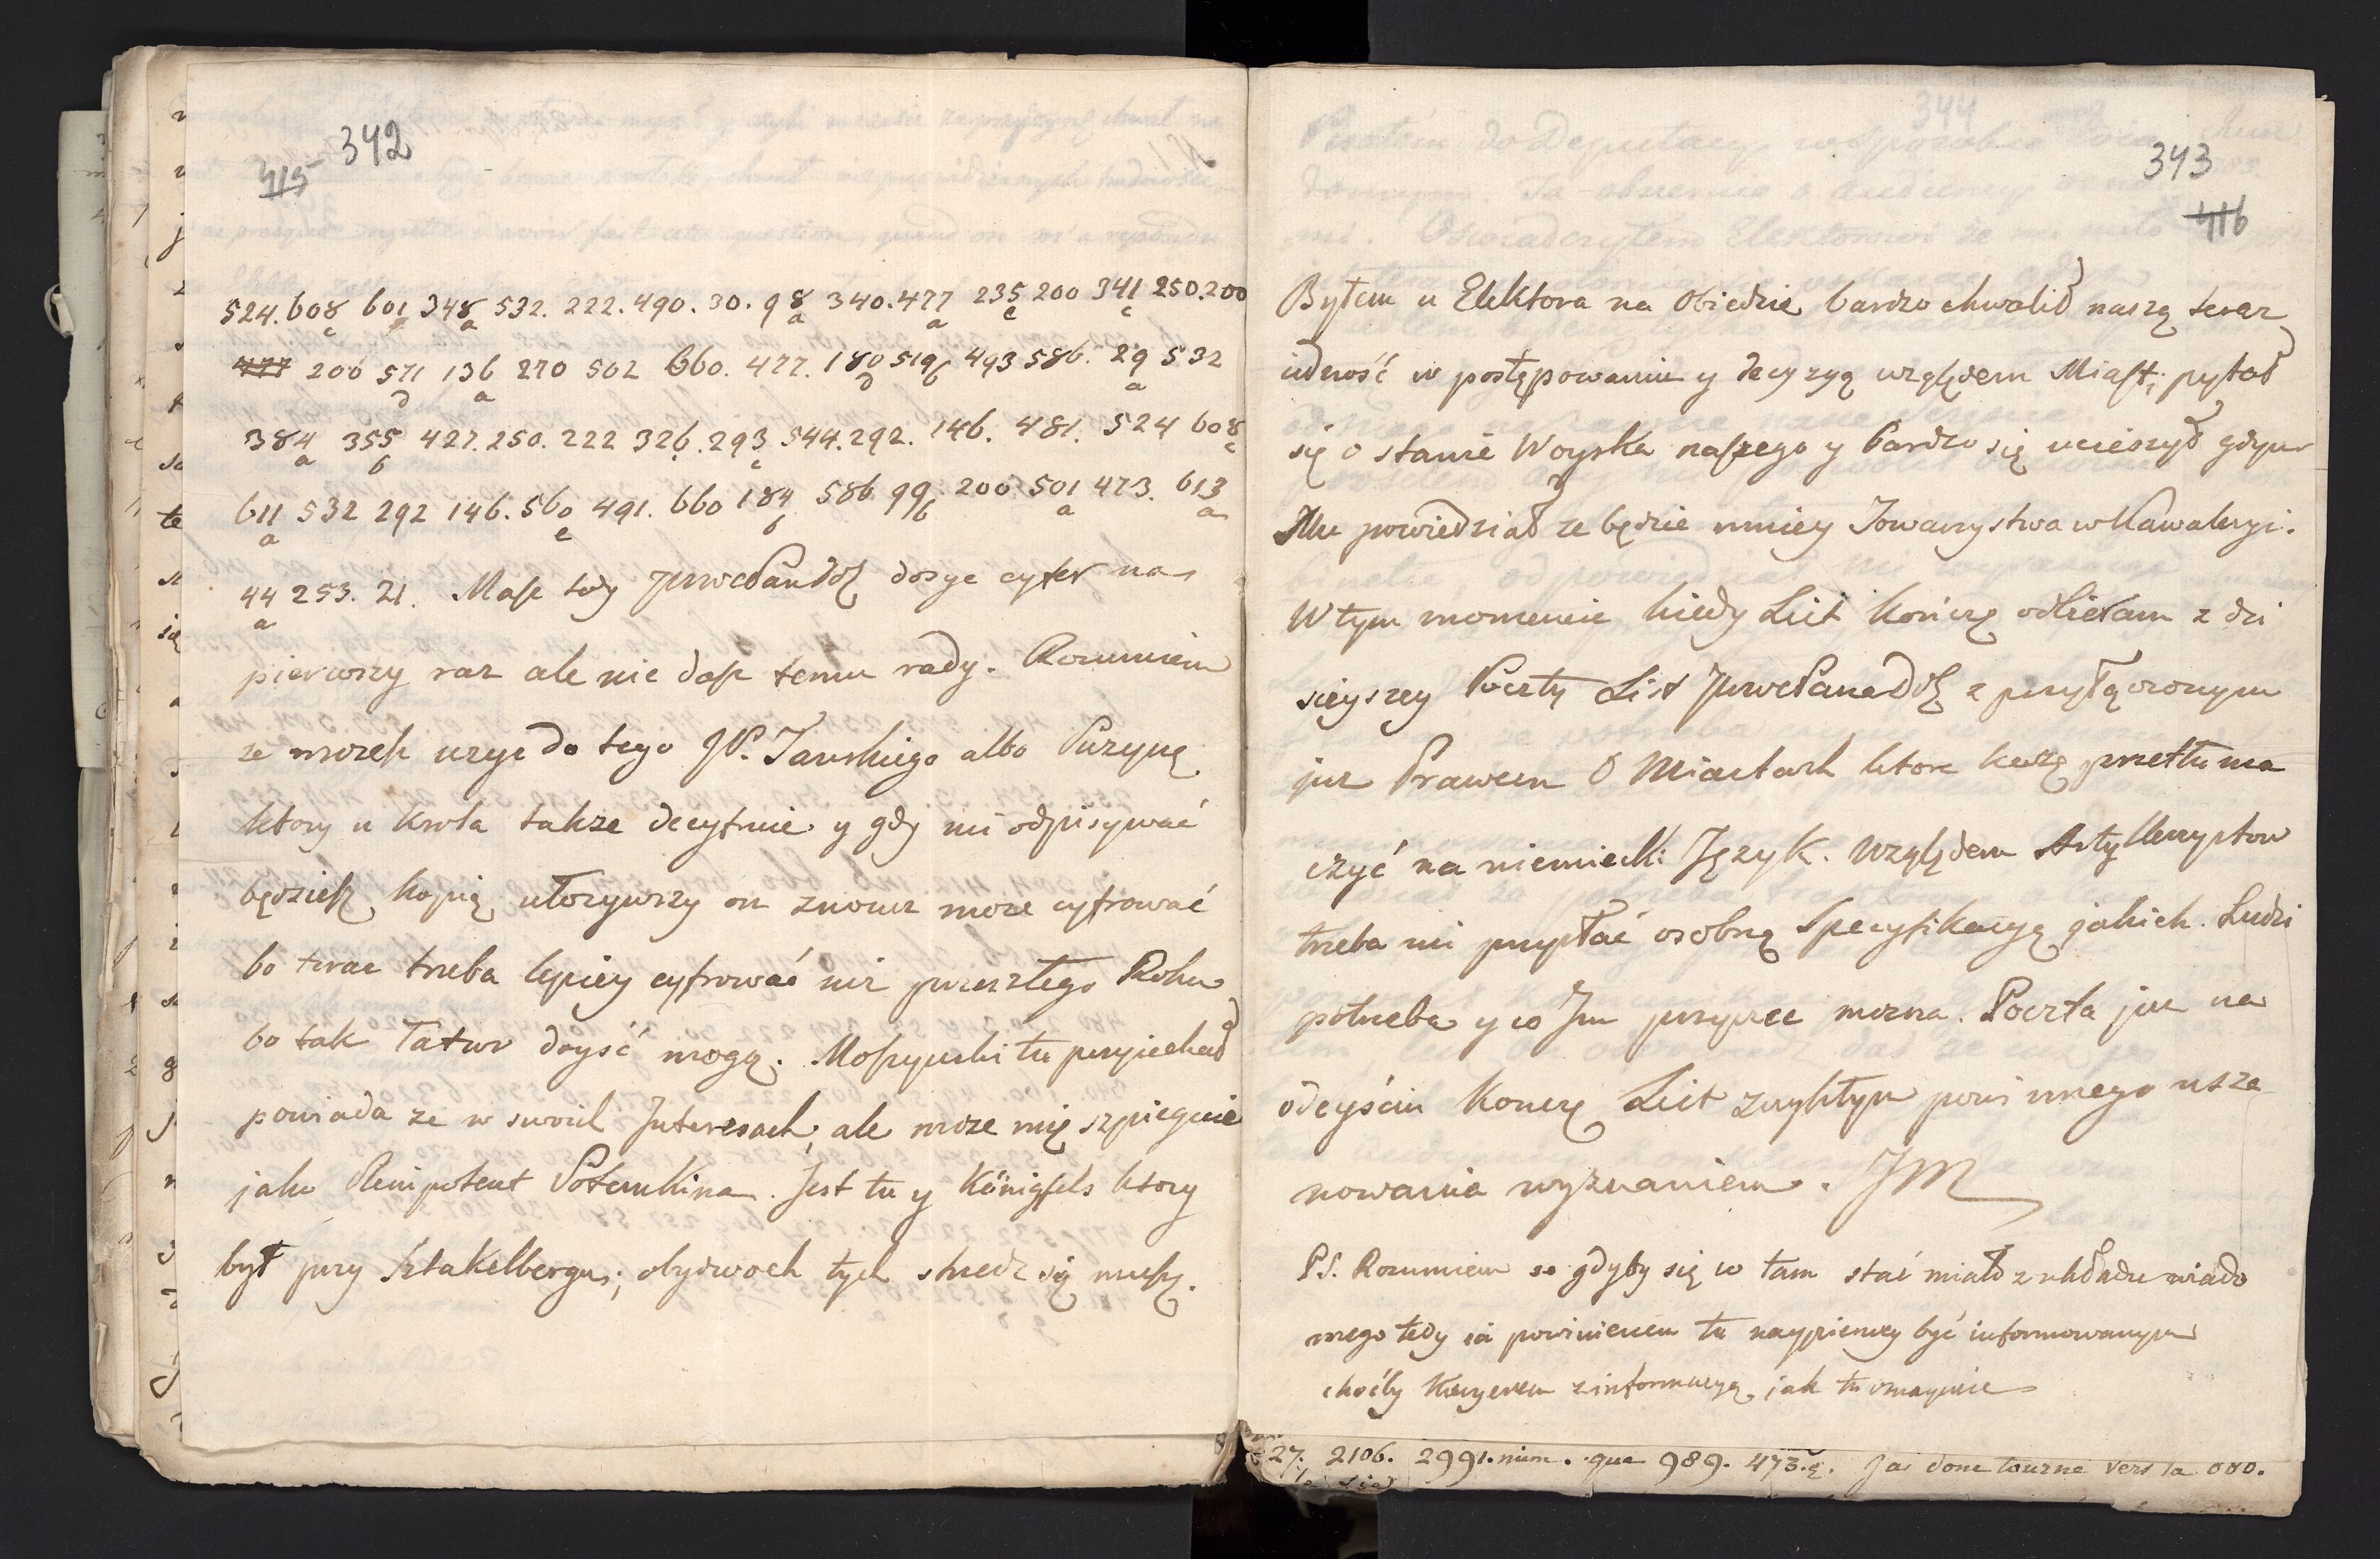 342
415
524. 608 601 348 532. 222. 490. 30. 98 340. 477 235 200 341 250. 200
c a a a e c
477 200 571 136 270 502 660. 477. 180 519 493 586. 29 532
d a d b a
384 355 427. 250. 222 326. 293 544. 292. 146. 481. 524 608
a b c c
611 532 292 146. 560 491. 660 184 586 99 200 501 473. 613
a e b b a a
44 253. 21. Masz tedy JWWPanDob dosyc cyfer na
a
pierwszy raz ale nie dasz temu rady. Rozumiem
ze mozesz uzyc do tego JP. Jarskiego albo Puzynę
ktory u Krola takze decyfruie y gdy mi odpisywać
będziesz kopią ułozywszy on znowu moze cyfrować
bo teraz trzeba lepiey cyfrować niz przeszłego Roku
bo tak łatwo doyść mogą. Moszynski tu przyiechał
powiada ze w swoich Interesach, ale moze mię szpieguie
jako Plenipotent Potemkina. Jest tu y Königfels ktory
był przy Sztakelbergu; obydwoch tych strzedz się muszę.
343
416
Byłem u Elektora na Obiedzie bardzo chwalił naszą teraz
idność w postępowaniu y decyzyą względem Miast; pytał
się o stanie Woyska naszego y bardzo się ucieszył gdym
Mu powiedział ze będzie mniey Towarzystwa w Kawaleryi.
W tym momencie kiedy List kończę odbieram z dzi
sieyszey Poczty List JWWPanaDob z przyłączonym
juz Prawem O Miastach ktore każę przetłuma
czyć na niemiecki Język. Względem Artyllerzystow
trzeba mi przysłać osobną Specyfikacyą jakich Ludzi
potrzeba y co Im przyrzec mozna. Poczta juz na
odeyściu Koncze List zwykłym powinnego usza
nowania wyznaniem. JM
PS. Rozumiem ze gdyby się co tam stać miało z układu wiado
mego tedy ia powinienem tu naypierwey być informowanym
choćby Kuryerem z informacyą, jak tu
27. 2106. 2991. mim. que 989. 473. J'ai donc tourné vers la 000.